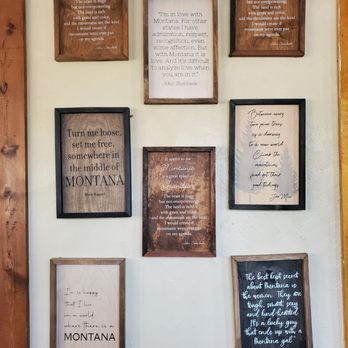 The scale is huge
but not overpowering.
The land is rich
with grass and color,
and the mountains are the kind
I would create if
mountains were ever put
on my agenda.
"I'm in love with
Montana. For other
states I have
admiration, respect,
recognition, even
some affection. But
with Montana it is
love. And it's difficult
to analyze love when
you are in it."
The scale is huge
but not overpowering.
The land is rich
with grass and color,
and the mountains are the kind
I would create if
mountains were ever put
on my agenda.
Turn me loose,
set me free,
somewhere in
the middle of
MONTANA
It seems to me
Montana
is a great splash of
grandeur.
The scale is huge
but not overpowering.
The land is rich
with grass and color,
and the mountains are the kind
I would create if
mountains were ever put
on my agenda.
Between every
two pine trees
is a doorway
to a new world.
Climb the
mountains
and get their
good tidings.
I'm so happy
that I live
in a world
where there is a
MONTANA
The best kept secret
about Montana is
the women. They are
tough, smart, sexy
and kind hearted.
It's a lucky guy
that ends up with a
Montana gal.